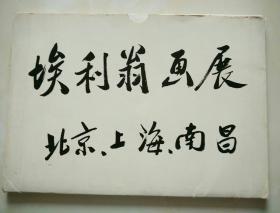 埃利翁画展
北京、上海、南昌